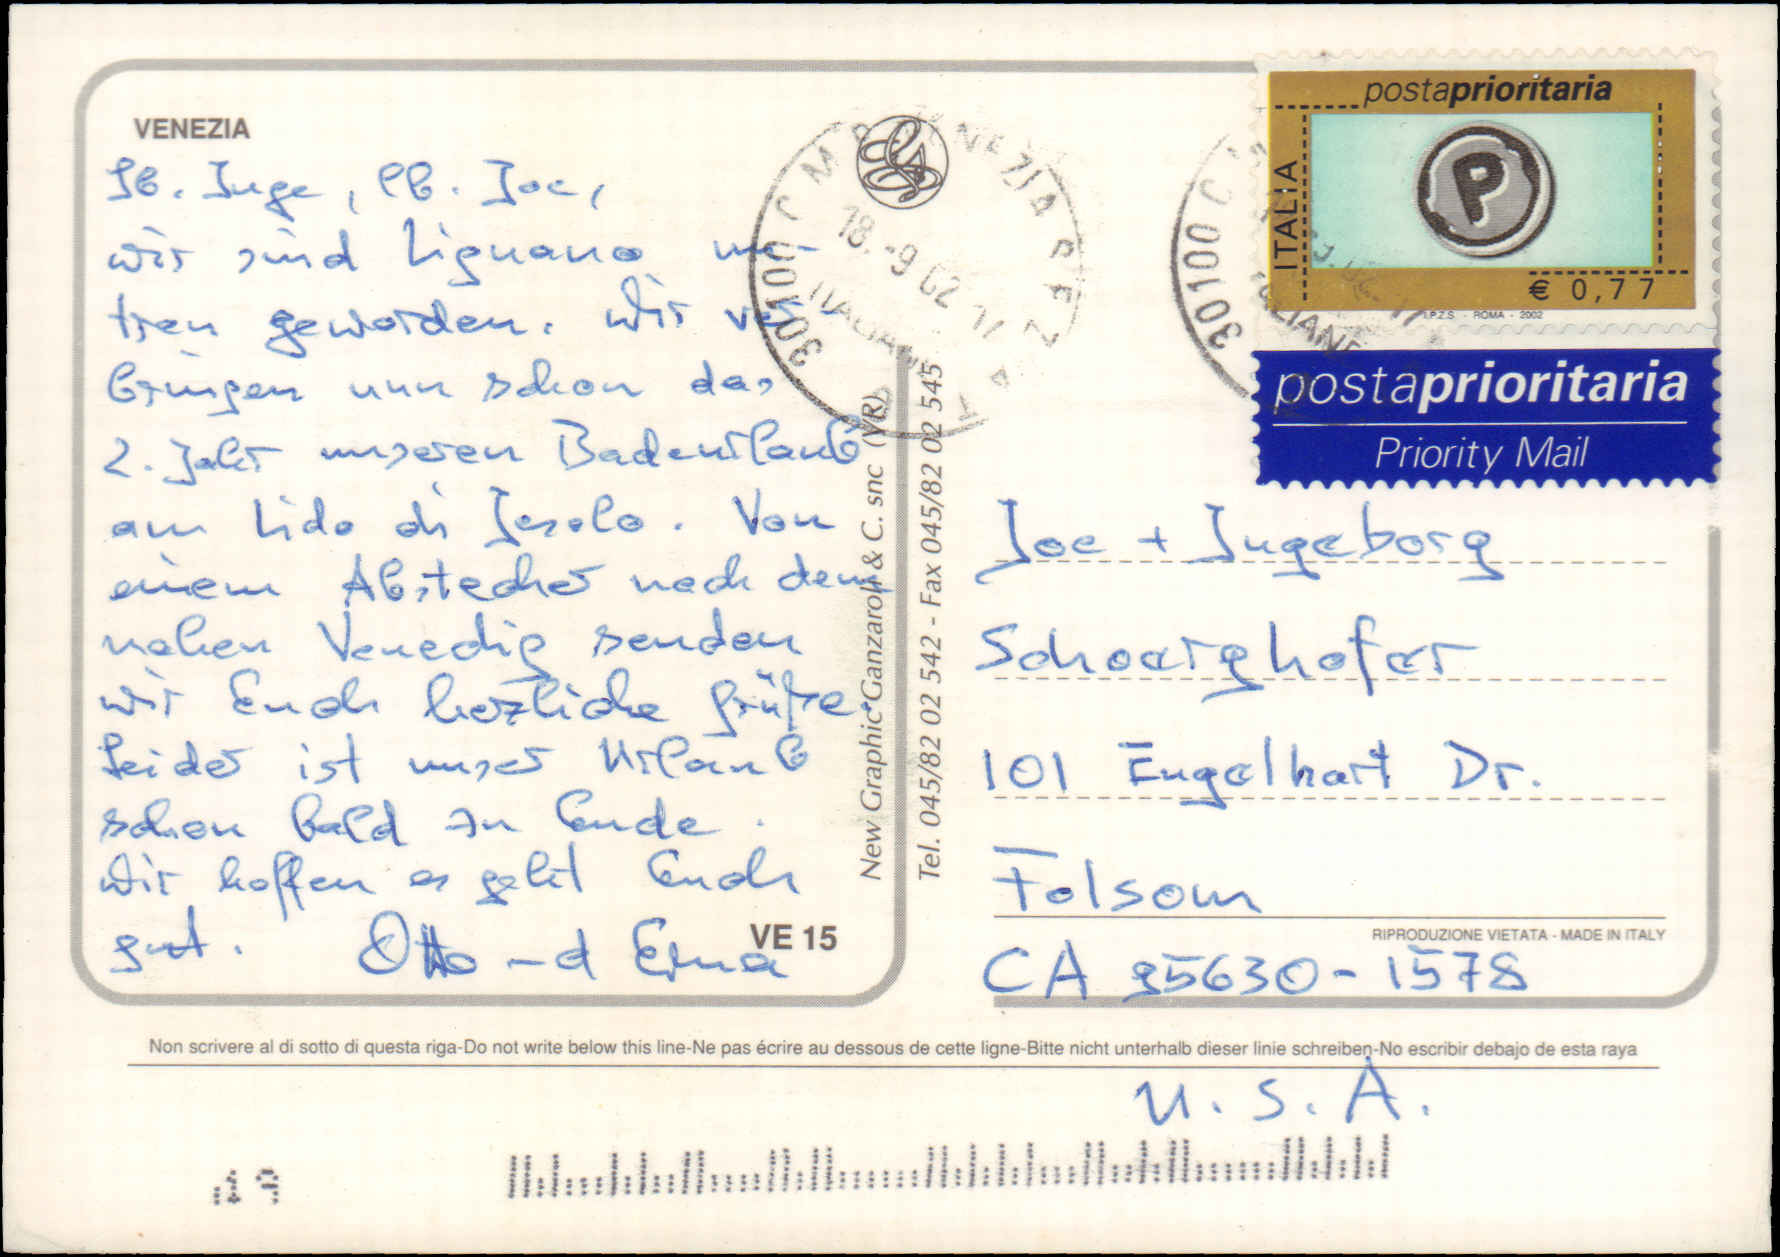 VENEZIA
Lb. Inge, lb. Joe,
wir sind Lignano un-
treu geworden. Wir ver
bringen nun schon das
2. Jahr unseren Badeurlaub
am Lido di Jesolo. Von
einem Abstecher nach dem
nahen Venedig senden
wir Euch herzliche Grüße.
Leider ist unser Urlaub
schon bald zu Ende.
Wir hoffen es geht Euch
gut. Otto und Erna
VE 15
New Graphic Ganzaroli & C. snc (VR)
Tel. 045/82 02 542 - Fax 045/82 02 545
30100 C M P VENEZIA
18.-9 02 17
30100 C
postaprioritaria
ITALIA
P
€ 0,77
I.P.Z.S. - ROMA - 2002
postaprioritaria
Priority Mail
Joe + Ingeborg
Schoerghofer
101 Engelhart Dr.
Folsom
RIPRODUZIONE VIETATA - MADE IN ITALY
CA 95630-1578
Non scrivere al di sotto di questa riga-Do not write below this line-Ne pas écrire au dessous de cette ligne-Bitte nicht unterhalb dieser linie schreiben-No escribir debajo de esta raya
U.S.A.